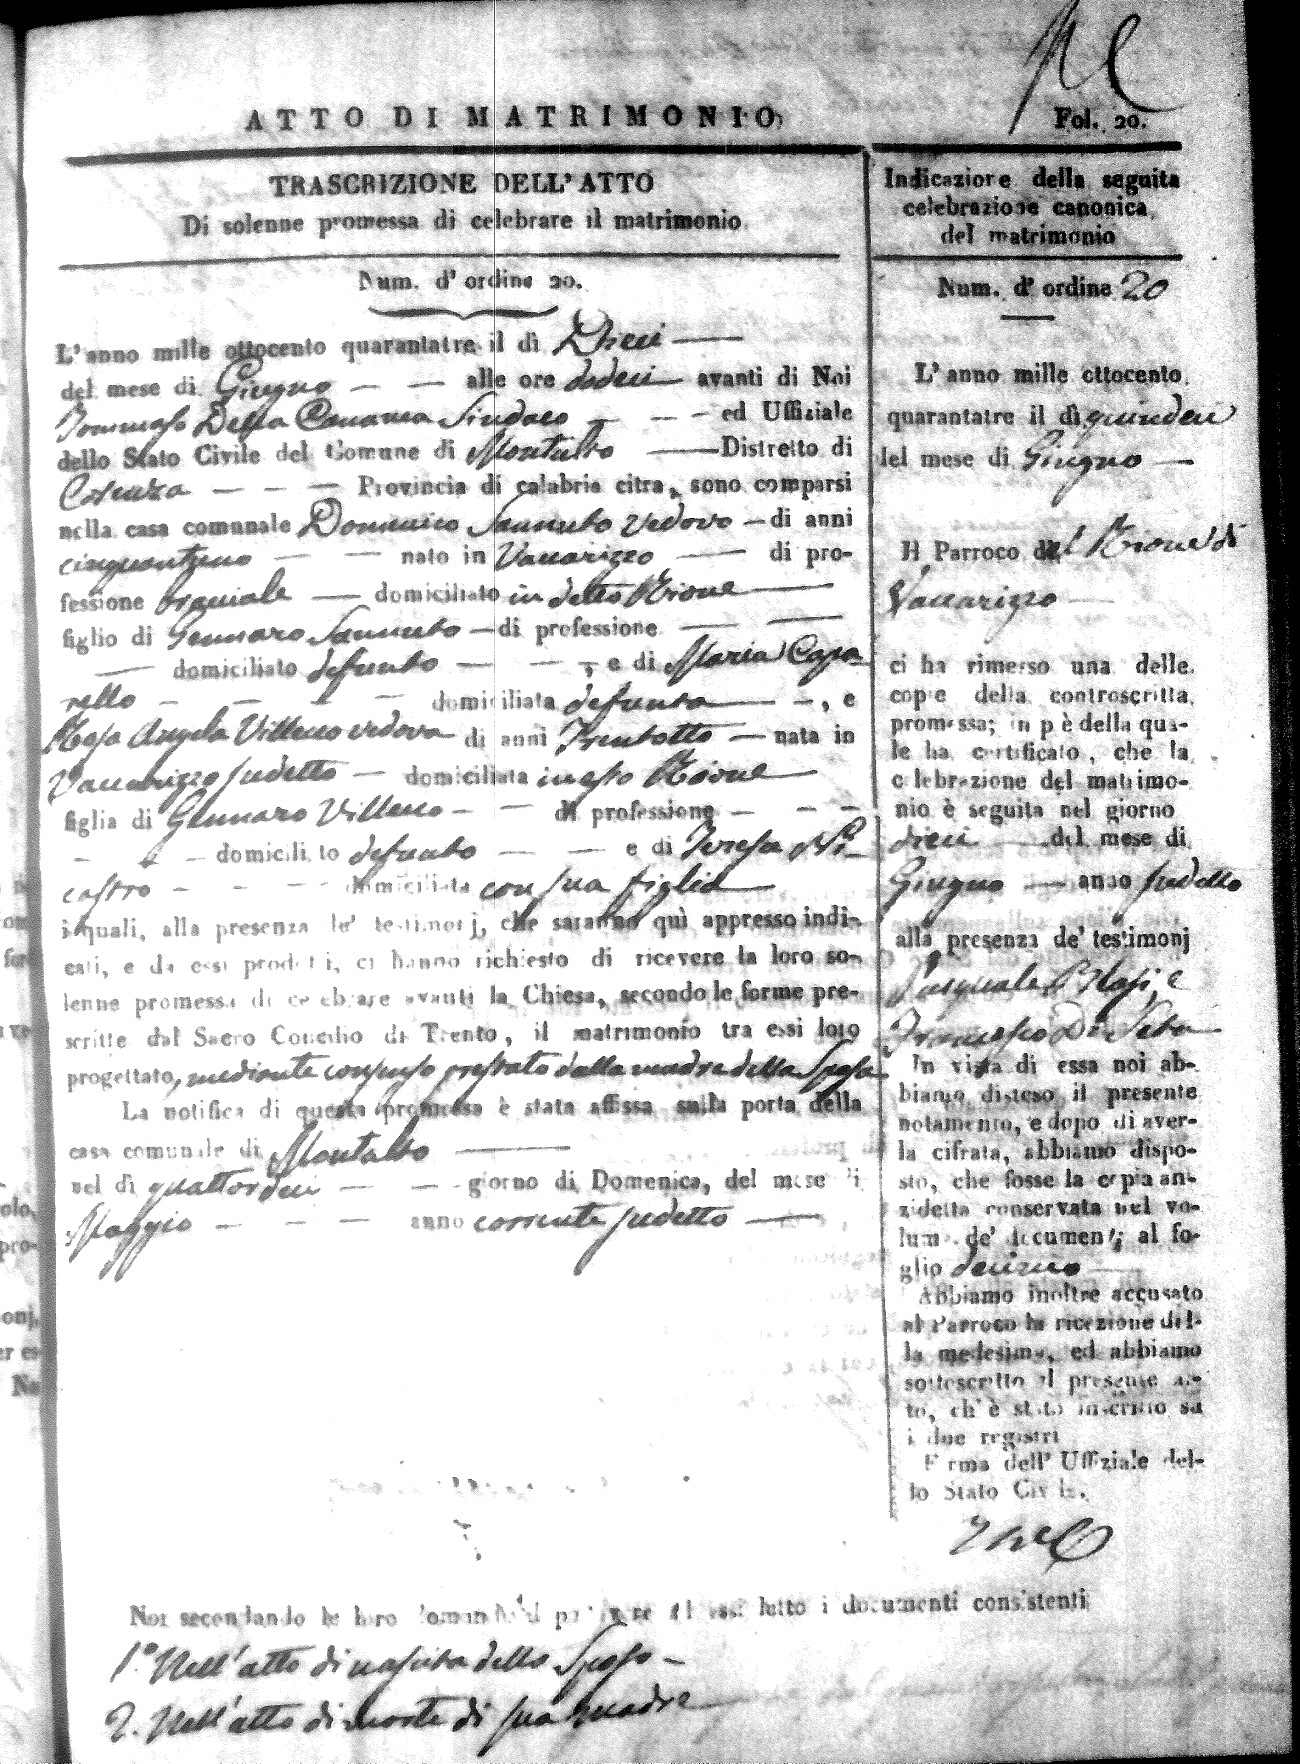 ATTO DI MATRIMONIO
Fol. 20.
TRASCRIZIONE DELL'ATTO
Di solenne promessa di celebrare il matrimonio.
Num. d'ordine 20.
L'anno mille ottocento quarantatre il dì Dieci
del mese di Giugno — — alle ore dodeci avanti di Noi
Tommaso Della Sindaco — — ed Uffiziale
dello Stato Civile del Comune di Montalto — Distretto di
Cosenza — — — Provincia di calabria citra, sono comparsi
nella casa comunale Domenico Sannuto vedovo — di anni
cinquantuno — — nato in Vaccarizzo — di pro-
fessione braciale — domiciliato in detto Rione —
figlio di Gennaro Sannuto — di professione — —
— domiciliato defunto — — , e di Maria Capa
rello — — — domiciliata defunta — —, e
Rosa Angela Villecco vedova di anni Trentotto — nata in
Vaccarizzo sudetto — domiciliata in esso Rione —
figlia di Gennaro Villecco — — di professione — — —
— — — domiciliato defunto — — e di Teresa Ni-
castro — — — domiciliata con sua figlia —
i quali, alla presenza de' testimonj, che saranno quì appresso indi-
cati, e da essi prodotti, ci hanno richiesto di ricevere la loro so-
lenne promessa di celebrare avanti la Chiesa, secondo le forme pre-
scritte dal Sacro Concilio di Trento, il matrimonio tra essi loro
progettato, mediante consenso prestato dalla madre della Sposa
La notifica di questa promessa è stata affissa sulla porta della
casa comunale di Montalto —
nel dì quattordeci — — giorno di Domenica, del mese di
Maggio — — — anno corrente sudetto —
Noi secondando le loro domande
letto i documenti consistenti
1.° Nell'atto di nascita dello Sposo —
2. Nell'atto di morte di sua madre
Indicazione della seguita
celebrazione canonica
del matrimonio
Num. d'ordine 20
L'anno mille ottocento
quarantatre il dì quindeci
del mese di Giugno —
Il Parroco del Rione di
Vaccarizzo —
ci ha rimesso una delle
copie della controscritta
promessa; in piè della qua-
le ha certificato, che la
celebrazione del matrimo-
nio è seguita nel giorno
dieci — del mese di
Giugno — anno sudetto
alla presenza de' testimonj
Pasquale Blasi, e
Francesco Di Seta
In vista di essa noi ab-
biamo disteso il presente
notamento, e dopo di aver-
la cifrata, abbiamo dispo-
sto, che fosse la copia an-
zidetta conservata nel vo-
lume de' documenti al fo-
glio decimo —
Abbiamo inoltre accusato
al Parroco la ricezione del-
la medesima, ed abbiamo
sottoscritto il presente at-
to, ch'è stato inscritto su
i due registri
Firma dell'Uffiziale del-
lo Stato Civile.